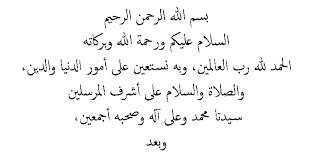 بسم الله الرحمن الرحيم
السلام عليكم ورحمة الله وبركاته
الحمد لله رب العالمين، وبه نستعين على أمور الدنيا والدين،
والصلاة والسلام على أشرف المرسلين
سيدنا محمد وعلى آله وصحبه أجمعين،
وبعد